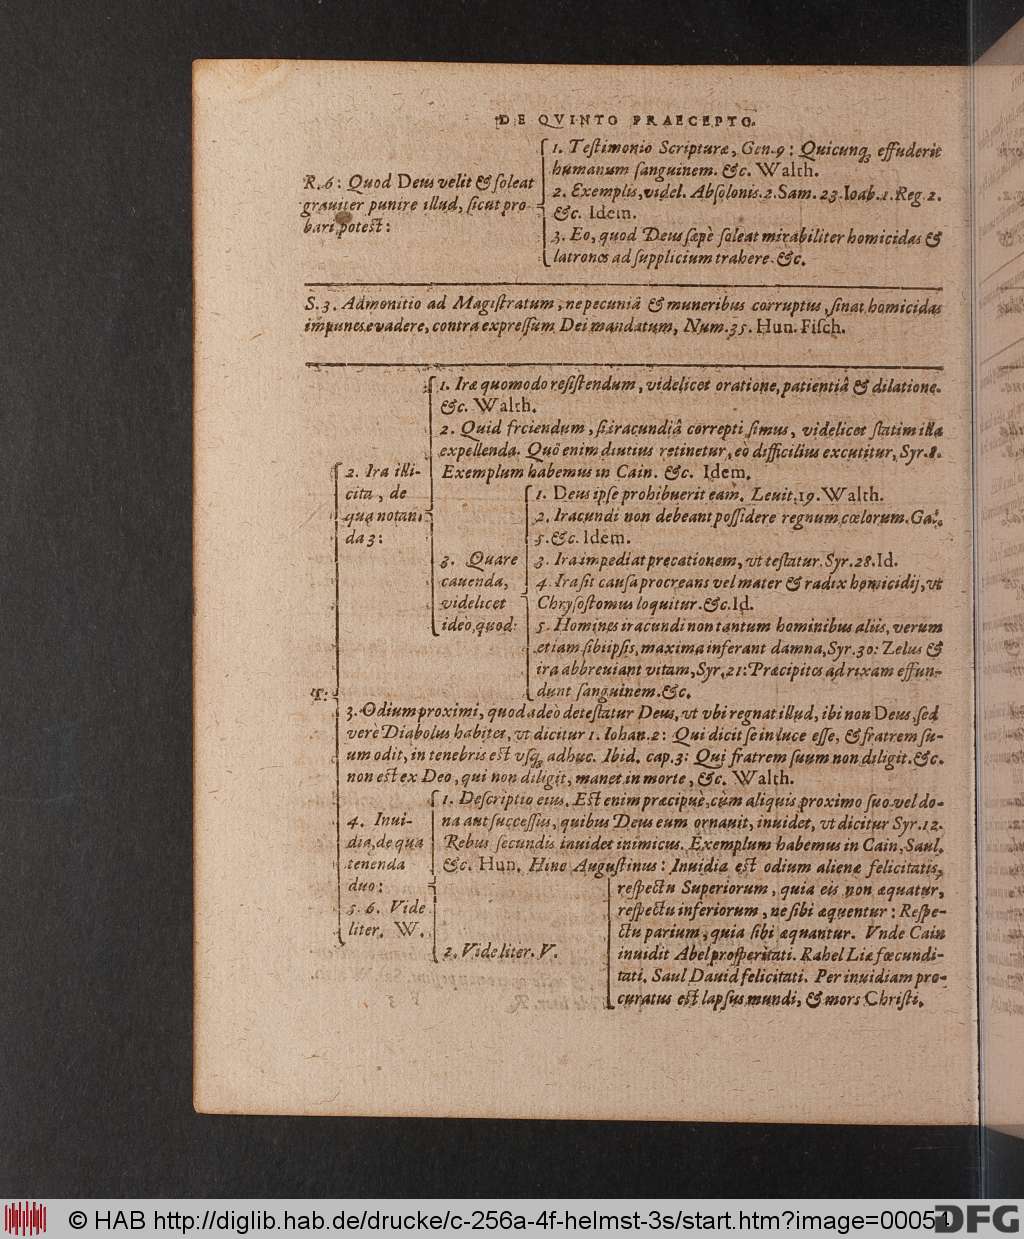 DE QVINTO PRAECEPTO.
R. 6: Quod Deus velit & ſoleat
grauiter punire illud, ſicut pro-
bari poteſt:
1. Teſtimonio Scripturæ, Gen. 9: Quicunq; effuderit
humanum ſanguinem. &c. Walth.
2. Exemplis, videl. Abſolonis. 2. Sam. 23. Ioab. 1. Reg. 2.
&c. Idem.
3. Eo, quod Deus ſæpè ſoleat mirabiliter homicidas &
latrones ad ſupplicium trahere. &c.
S. 3. Admonitio ad Magiſtratum, ne pecuniâ & muneribus corruptus, ſinat homicidas
impunes euadere, contra expreſſum Dei mandatum, Num. 35. Hun. Fiſch.
T:
2. Ira illi-
cita, de
qua notan-
da 3:
1. Iræ quomodo reſiſtendum, videlicet oratione, patientiâ & dilatione.
&c. Walth.
2. Quid frciendum, ſi iracundiâ correpti ſimus, videlicet ſtatim illa
expellenda. Quò enim diutius retinetur, eò difficilius excutitur, Syr. 8.
Exemplum habemus in Cain. &c. Idem.
3. Quare
cauenda,
videlicet
ideo, quod:
1. Deus ipſe prohibuerit eam. Leuit. 19. Walth.
2. Iracundi non debeant poſſidere regnum cœlorum. Gal.
5. &c. Idem.
3. Ira impediat precationem, vt teſtatur. Syr. 28. Id.
4. Ira ſit cauſa procreans vel mater & radix homicidij, vt
Chryſoſtomus loquitur. &c. Id.
5. Homines iracundi non tantum hominibus aliis, verum
etiam ſibiipſis, maxima inferant damna, Syr. 30: Zelus &
ira abbreuiant vitam, Syr. 21: Præcipites ad rixam effun-
dunt ſanguinem. &c.
3. Odium proximi, quod adeò deteſtatur Deus, vt vbi regnat illud, ibi non Deus, ſed
verè Diabolus habitet, vt dicitur 1. Iohan. 2: Qui dicit ſe in luce eſſe, & fratrem ſu-
um odit, in tenebris eſt vſq; adhuc. Ibid. cap. 3: Qui fratrem ſuum non diligit. &c.
non eſt ex Deo, qui non diligit, manet in morte, &c. Walth.
4. Inui-
dia, de qua
tenenda
duo:
5. 6. Vide
liter. W.
1. Deſcriptio eius. Eſt enim præcipuè, cùm aliquis proximo ſuo vel do-
na aut ſucceſſus, quibus Deus eum ornauit, inuidet, vt dicitur Syr. 12.
Rebus ſecundis inuidet inimicus. Exemplum habemus in Cain, Saul.
&c. Hun. Hinc Auguſtinus: Inuidia eſt odium alienæ felicitatis,
reſpectu Superiorum, quia eis non æquatur,
reſpectu inferiorum, ne ſibi æquentur: Reſpe-
ctu parium, quia ſibi æquantur. Vnde Cain
inuidit Abel proſperitati. Rahel Liæ fœcundi-
tati. Saul Dauid felicitati. Per inuidiam pro-
curatus eſt lapſus mundi, & mors Chriſti.
2. Vide liter. V.
© HAB http://diglib.hab.de/drucke/c-256a-4f-helmst-3s/start.htm?image=00054
DFG